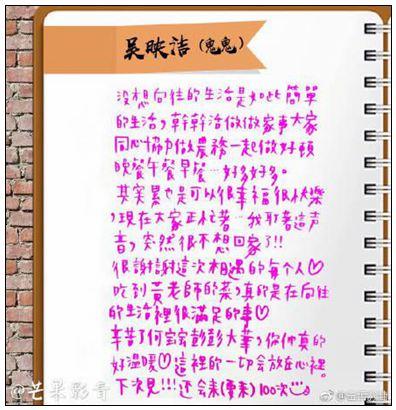 吴映洁（鬼鬼）
沒想向往的生活是如此簡單
的生活，幹幹活做做家事大家
同心協力做農務一起做好頓
晚餐午餐早餐…好多好多。
其實累也是可以很幸福很快樂
，現在大家正忙著…我聽著這声
音，突然很不想回家了!!
很謝謝這次相遇的每个人♡
吃到黃老師的菜，真的是在向往
的生活裡很滿足的事♡
辛苦了何炅彭彭大華，你们真的
好溫暖♡這裡的一切会放在心裡。
下次見!!!还会来(要来)100次
@芒果影音